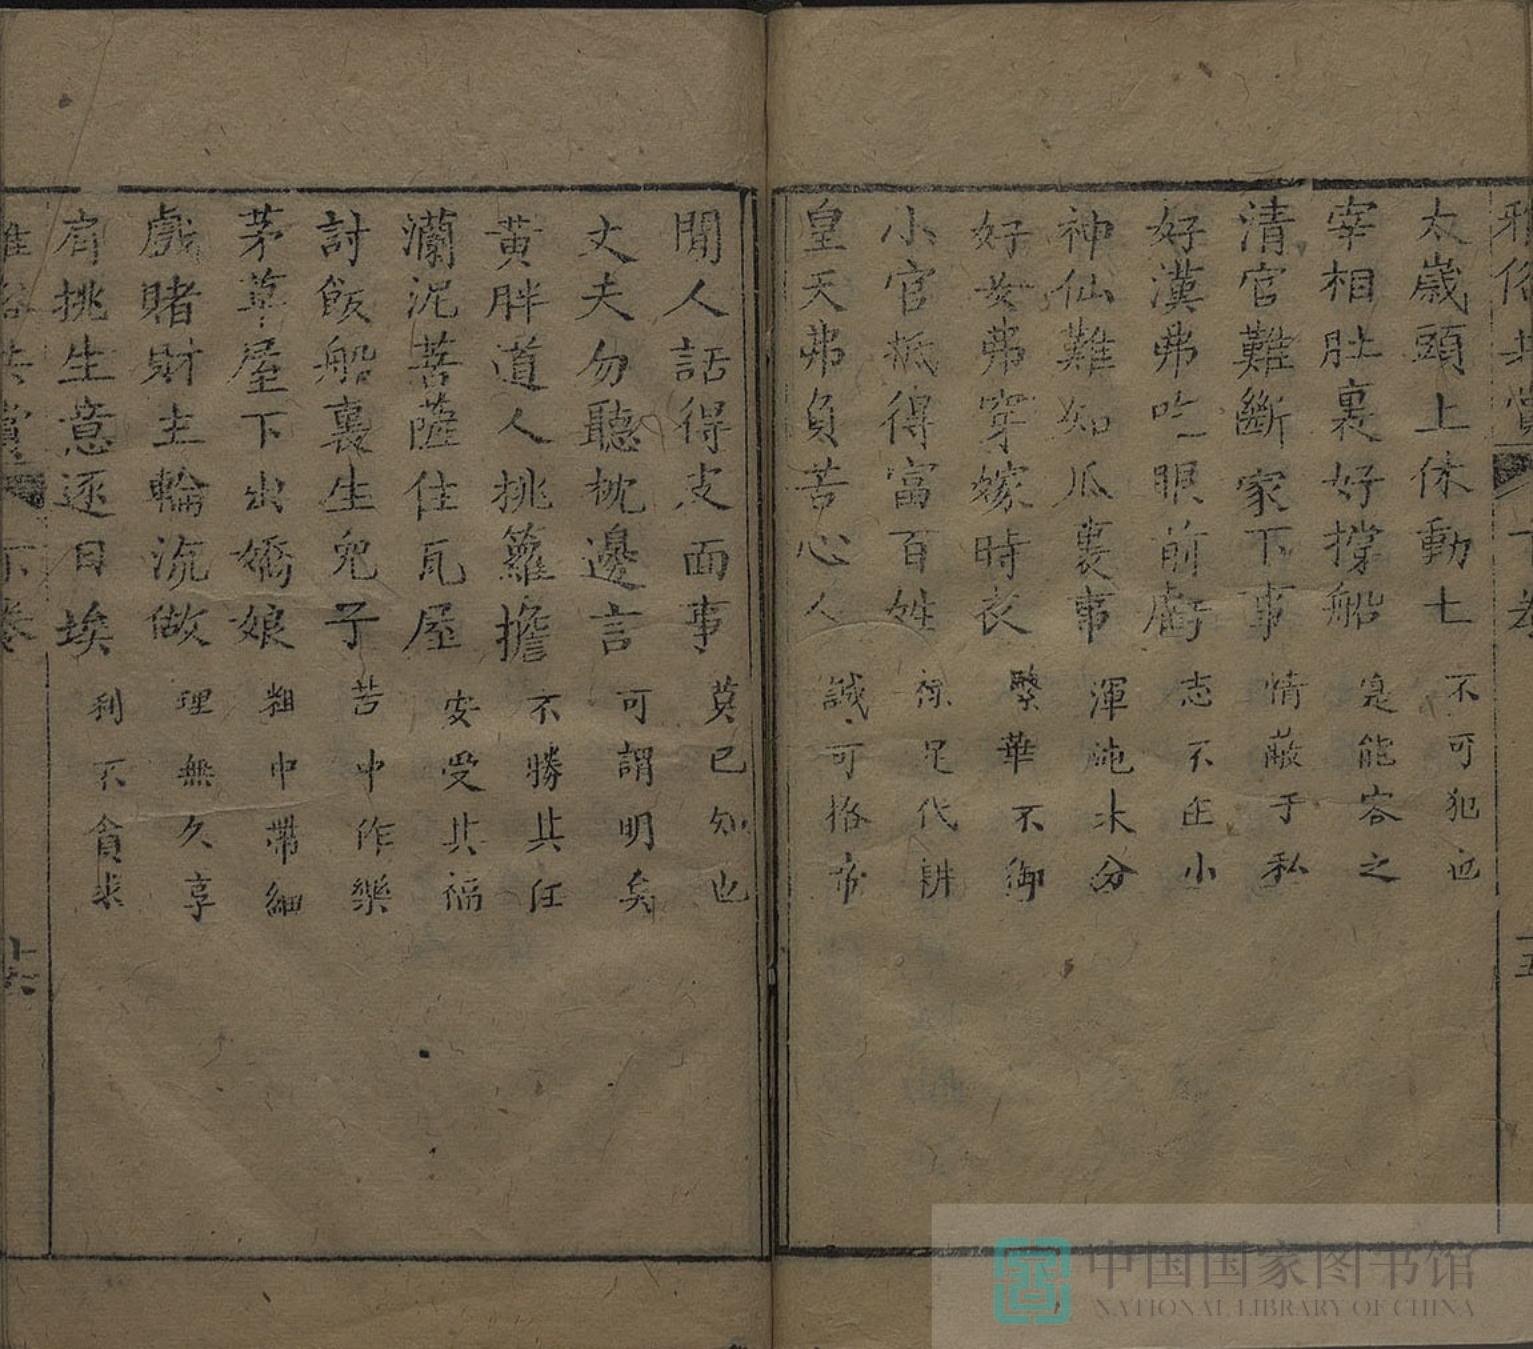 雅俗共賞 下卷 十五
太歲頭上休動土 不可犯也
宰相肚裏好撐船 寬能容之
清官難斷家下事 情蔽于私
好漢弗吃眼前虧 志不在小
神仙難知瓜裏事 渾沌未分
好女弗穿嫁時衣 繁華不御
小官抵得富百姓 祿足代耕
皇天弗負苦心人 誠可格帝
閒人話得皮面事 莫已知也
丈夫勿聽枕邊言 可謂明矣
黃胖道人挑籮擔 不勝其任
瀾泥菩薩住瓦屋 安受其福
討飯船裏生兒子 苦中作樂
茅草屋下出嬌娘 粗中帶細
戲賭財主輪流做 理無久享
肩挑生意逐日埃 利不貪求
雅俗共賞 下卷 十六
中国国家图书馆
NATIONAL LIBRARY OF CHINA